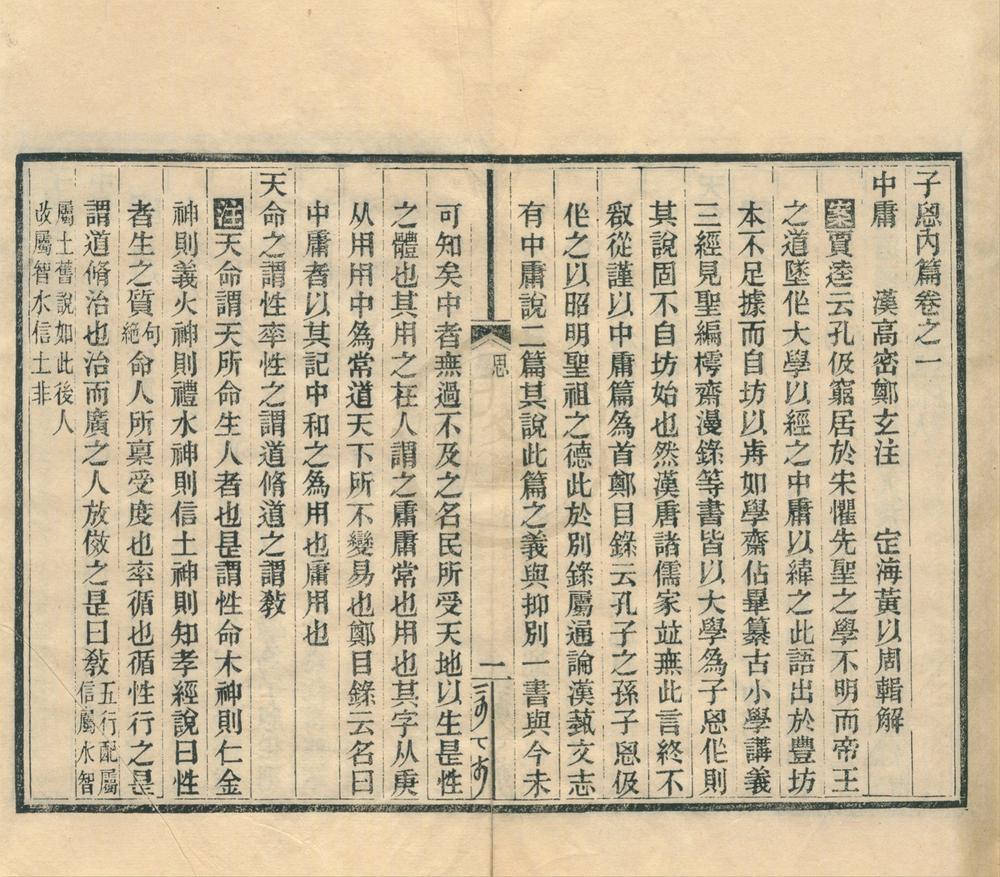 子恖內篇卷之一
中庸　漢高密鄭玄注　定海黃以周輯解
案賈逵云孔伋窮居於宋懼先聖之學不明而帝王
之道墜作大學以經之中庸以緯之此語出於豐坊
本不足據而自坊以歬如學齋佔畢纂古小學講義
三經見聖編樗齋漫錄等書皆以大學爲子恖作則
其說固不自坊始也然漢唐諸儒家竝無此言終不
敢從謹以中庸篇爲首鄭目錄云孔子之孫子恖伋
作之以昭明聖祖之德此於別錄屬通論漢蓺文志
有中庸說二篇其說此篇之義與抑別一書與今未
思
一
可知矣中者無過不及之名民所受天地以生是性
之體也其用之在人謂之庸庸常也用也其字从庚
从用用中爲常道天下所不變易也鄭目錄云名曰
中庸者以其記中和之爲用也庸用也
天命之謂性率性之謂道脩道之謂敎
注天命謂天所命生人者也是謂性命木神則仁金
神則義火神則禮水神則信土神則知孝經說曰性
者生之質句絕命人所稟受度也率循也循性行之是
謂道脩治也治而廣之人放傚之是曰敎五行配屬信屬水智
屬土舊說如此後人改屬智水信土非